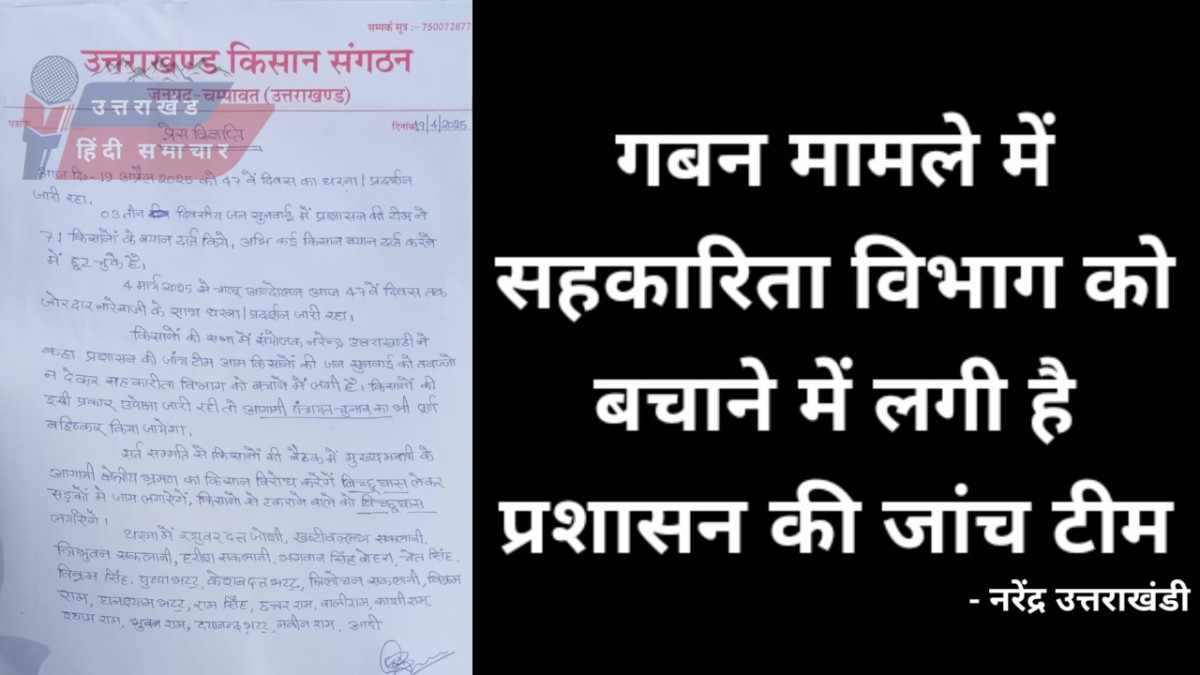 सम्पर्क सूत्र :- 75007287
उत्तराखण्ड किसान संगठन
जनपद-चम्पावत (उत्तराखण्ड)
उत्तराखंड
हिंदी समाचार
दिनांक 19/4/2025
प्रेस विज्ञप्ति
आज दि०- 19 अप्रैल 2025 को 47 वें दिवस का धरना/प्रदर्शन
जारी रहा.
03 तीन दिवसीय जन सुनवाई में प्रशासन की टीम ने
71 किसानों के बयान दर्ज किये, अभि कई किसान बयान दर्ज करने
में छूट चुके है।
4 मार्च 2025 से आन्दोलन आज 47 वें दिवस तक
जोरदार नारेबाजी के साथ धरना/प्रदर्शन जारी रहा।
किसानों की सभा में संयोजक नरेन्द्र उत्तराखण्डी ने
कहा प्रशासन की जांच टीम आम किसानों की जन सुनवाई को तवज्जो
न देकर सहकारीता विभाग को बचाने में लगी है। किसानों की
इसी प्रकार उपेक्षा जारी रही तो आगामी पंचायत चुनाव का भी पूर्ण
बहिष्कार किया जायेगा।
सर्व सम्मति से किसानों की बैठक में मुख्यमंत्री के
आगामी क्षेत्रीय भ्रमण का किसान विरोध करेगें बिच्छूघास लेकर
सड़कों में जाम लगाऐगें, किसानों से टकराने वाले को बिच्छूघास
लगाऐंगे।
धरना में रघुवर दत्त जोशी, सकलानी,
त्रिभुवन सकलानी, हरीश सकलानी, भगवान सिंह बोहरा, जेत सिंह,
विक्रम सिंह, भट्ट, केशवदत्त भट्ट, त्रिलोचन सकलानी, विक्रम
राम, घनश्याम भट्ट, राम सिंह, राम, बालीराम, काशी राम,
श्याम राम, भुवन राम, दयानन्द भट्ट, नवीन राम, आदी
गबन मामले में
सहकारिता विभाग को
बचाने में लगी है
प्रशासन की जांच टीम
- नरेंद्र उत्तराखंडी